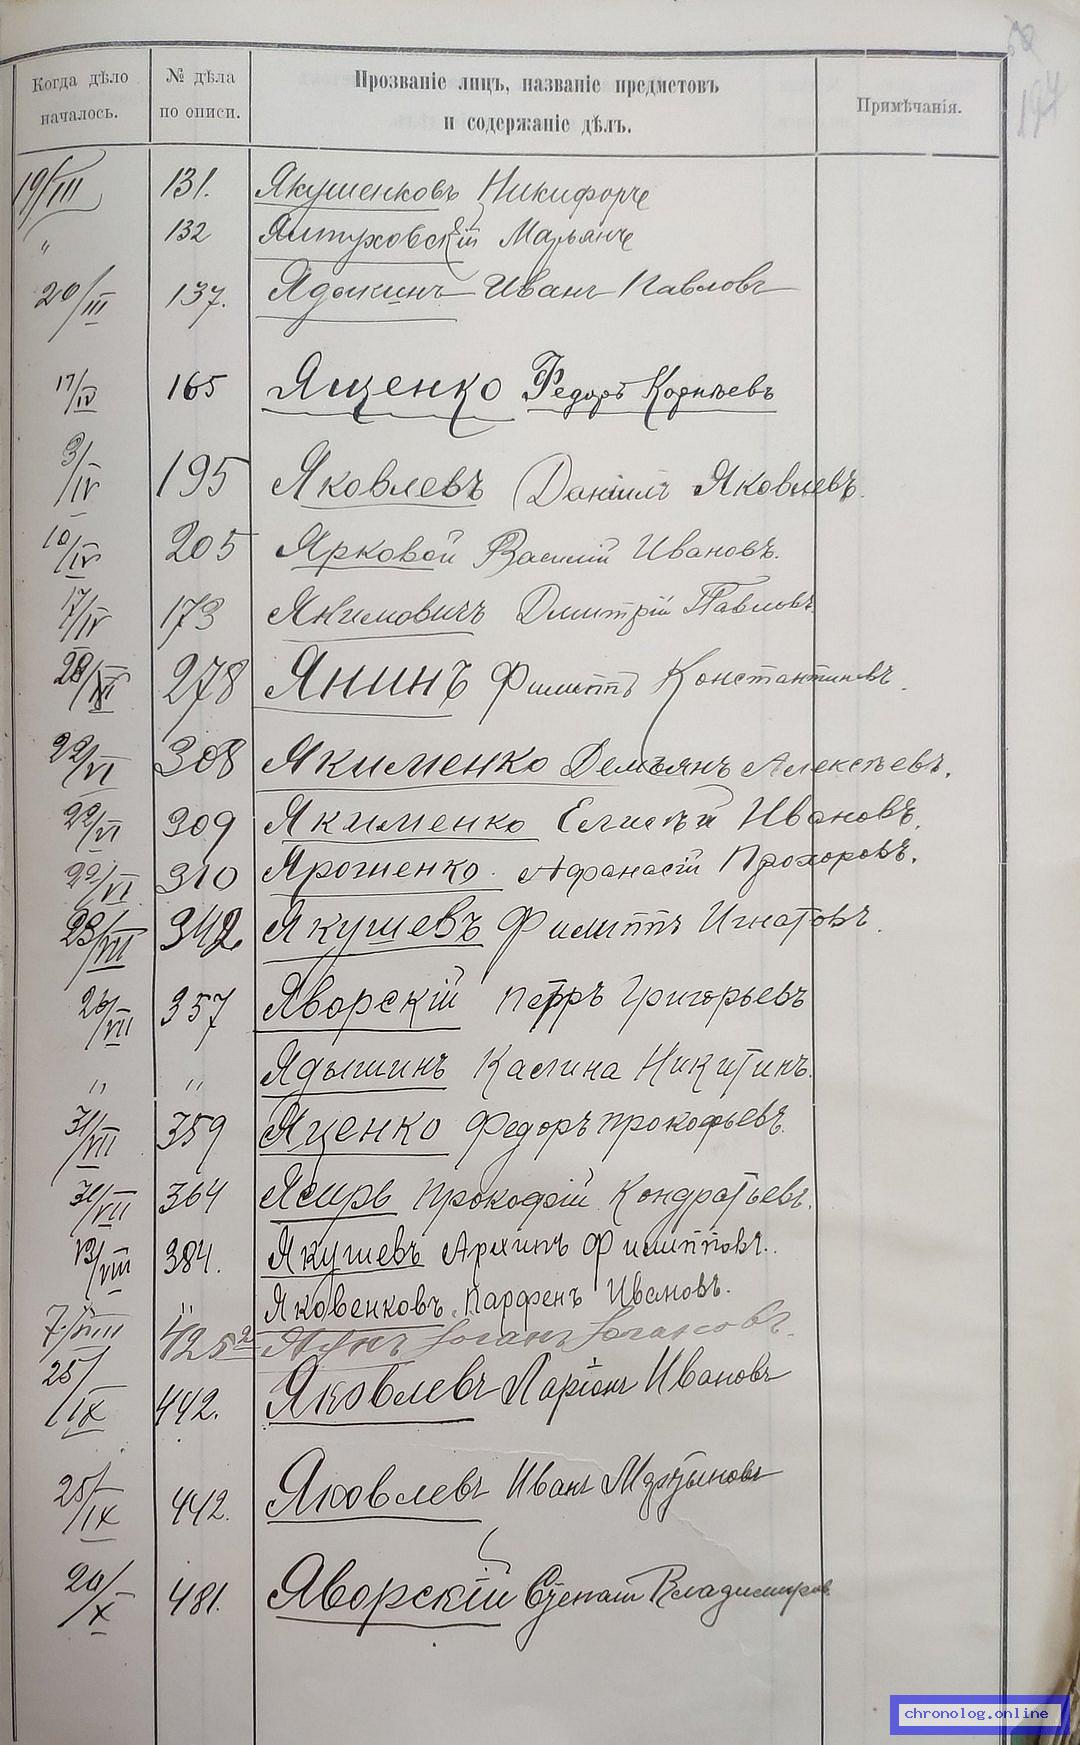 58
197
Когда дѣло началось.
№ дѣла по описи.
Прозваніе лицъ, названіе предметовъ и содержаніе дѣлъ.
Примѣчанія.
19/III 131. Якушенковъ Никифоръ
" 132 Ястуховскій Марьянъ
20/III 137. Ядыкинъ Иванъ Павловъ
17/IV 165 Ященко Федоръ Корнѣевъ
3/IV 195 Яковлевъ Даніилъ Яковлевъ.
10/IV 205 Ярковой Василій Ивановъ.
17/IV 173 Якимовичъ Дмитрій Павловъ
28/ 278 Янинъ Филиппъ Константиновъ.
22/VI 308 Якименко Демьянъ Алексѣевъ.
22/VI 309 Якименко Елисѣй Ивановъ.
22/VI 310 Ярошенко. Афанасій Прохоровъ.
23/VII 342. Якушевъ Филиппъ Игнатовъ.
26/VII 357 Яворскій Петръ Григорьевъ
" " Ядышинъ Калина Никитинъ.
31/VII 359 Яценко Федоръ Прокофьевъ.
31/VII 364 Ясырь Прокофій Кондратьевъ.
13/VIII 384. Якушевъ Архипъ Филипповъ.
" Яковенковъ Парфенъ Ивановъ.
7/VIII 425 Янъ Іоганъ Іогансовъ.
25/IX 442. Яковлевъ Ларіонъ Ивановъ
25/IX 442. Яковлевъ Иванъ Мартыновъ
20/X 481. Яворскій Степанъ Владимировъ
chronolog.online